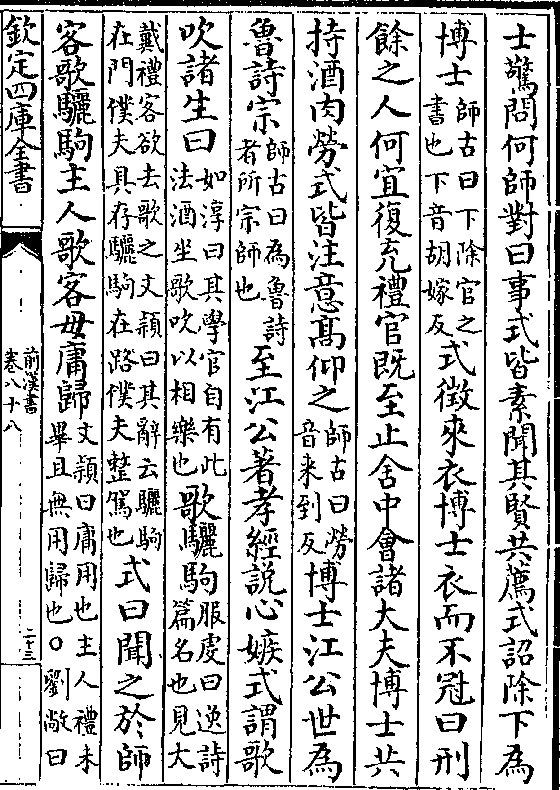 士驚問何師對曰事式皆素聞其賢共薦式詔除下為
博士師古曰下除官之書也下音胡嫁反式徵來衣博士衣而不冠曰刑
餘之人何宜復充禮官既至止舍中會諸大夫博士共
持酒肉勞式皆注意髙仰之師古曰勞音来到反博士江公世為
魯詩宗師古曰為魯詩者所宗師也至江公著孝經説心嫉式謂歌
吹諸生曰如淳曰其學官自有此法酒坐歌吹以相樂也歌驪駒服虔曰逸詩篇名也見大
戴禮客欲去歌之文頴曰其辭云驪駒在門僕夫具存驪駒在路僕夫整駕也式曰聞之於師
客歌驪駒主人歌客毋庸歸文頴曰庸用也主人禮未畢且無用歸也○劉敞曰
欽定四庫全書
前漢書
卷八十八
二十三